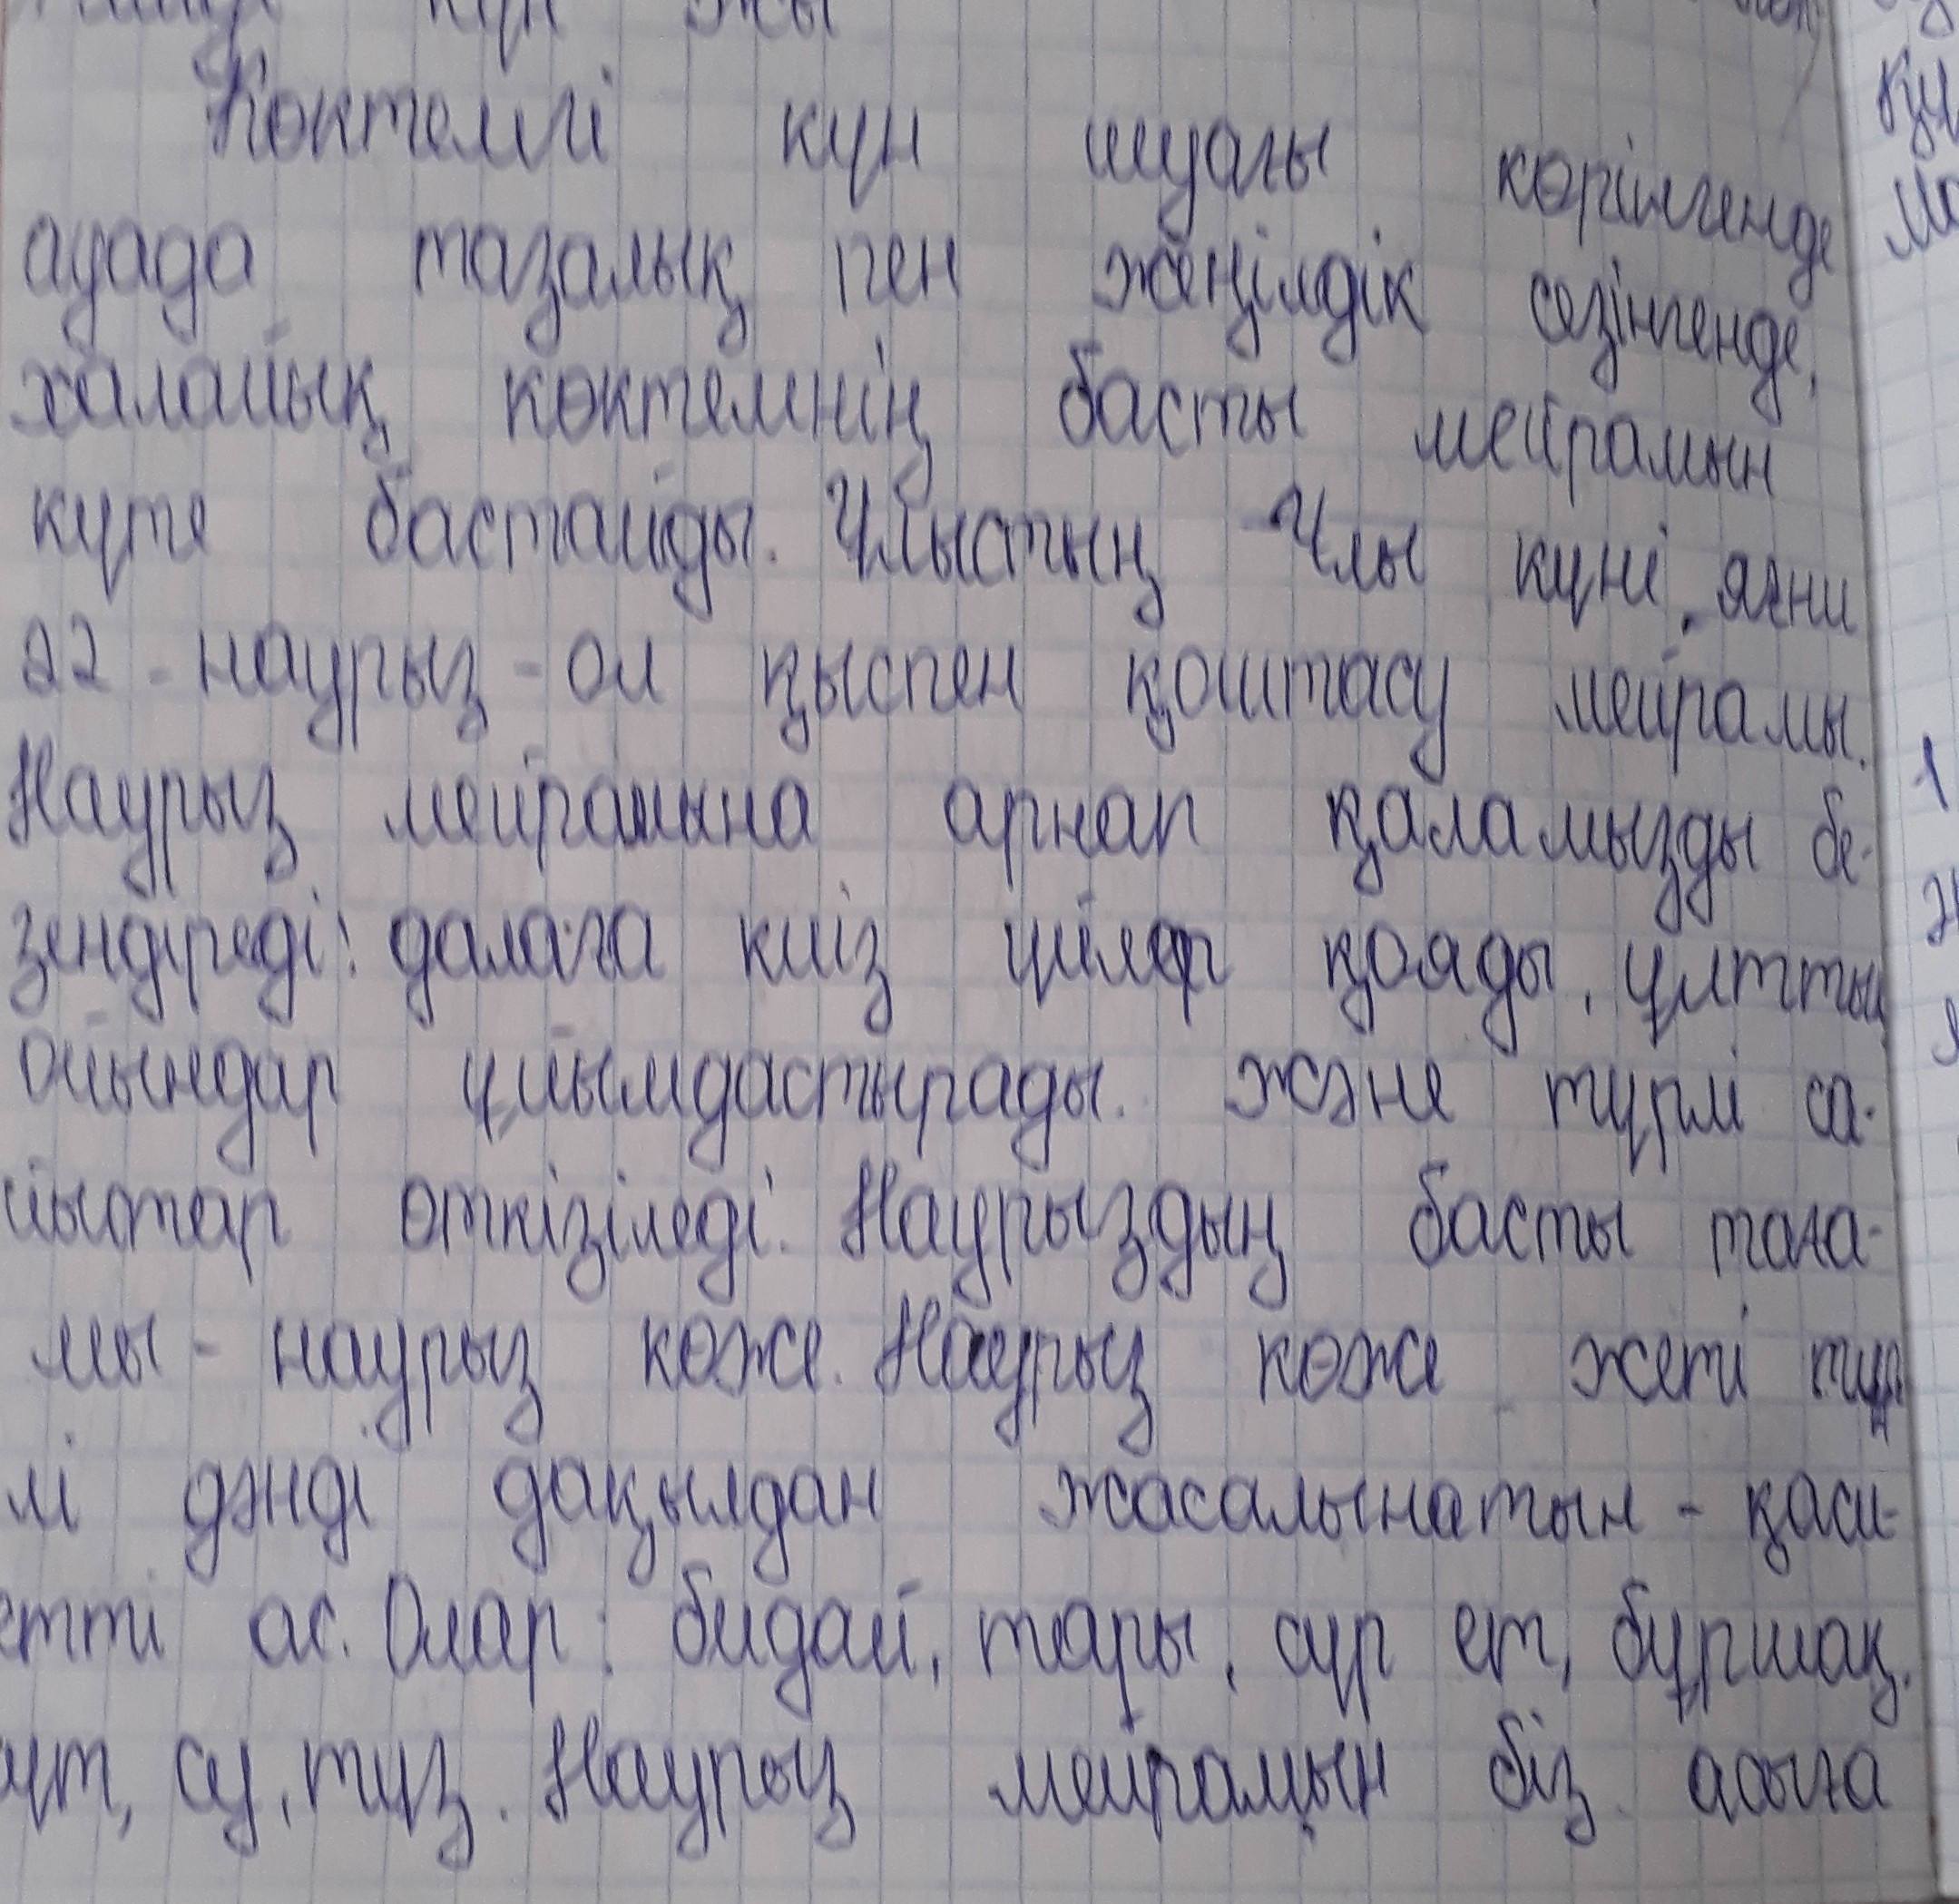 күн
Көктемгі күн шуағы көрінгенде
ауада тазалық пен жеңілдік сезінгенде,
халайық көктемнің басты мейрамын
күте бастайды. Ұлыстың Ұлы күні, яғни
22 - наурыз - ол қыспен қоштасу мейрамы.
Наурыз мейрамына арнап қаламызды бе-
зендіреді: далаға киіз үйлер қояды, ұлттық
ойындар ұйымдастырады. және түрлі са-
йыстар өткізіледі. Наурыздың басты таға-
мы - наурыз көже. Наурыз көже жеті түр
лі дәнді дақылдан жасалынатын - қаси-
етті ас. Олар: бидай, тары, сүр ет, бұршақ,
сүт, су, тұз. Наурыз мейрамын біз асыға